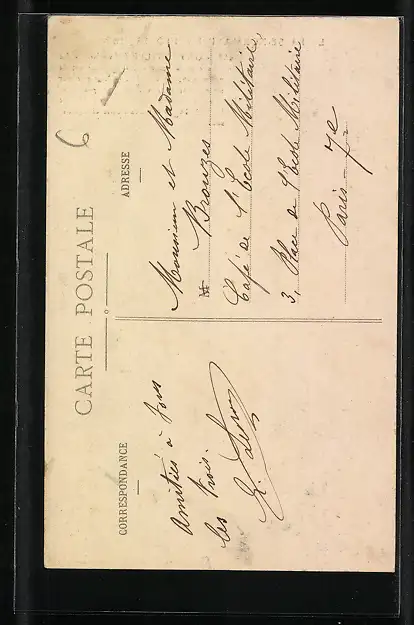 CARTE POSTALE
CORRESPONDANCE
Amitiés à tous
les trois.
ADRESSE
Monsieur et Madame
M Brouzes
Café de l'Ecole Militaire,
3, Place de l'Ecole Militaire
Paris 7e
6